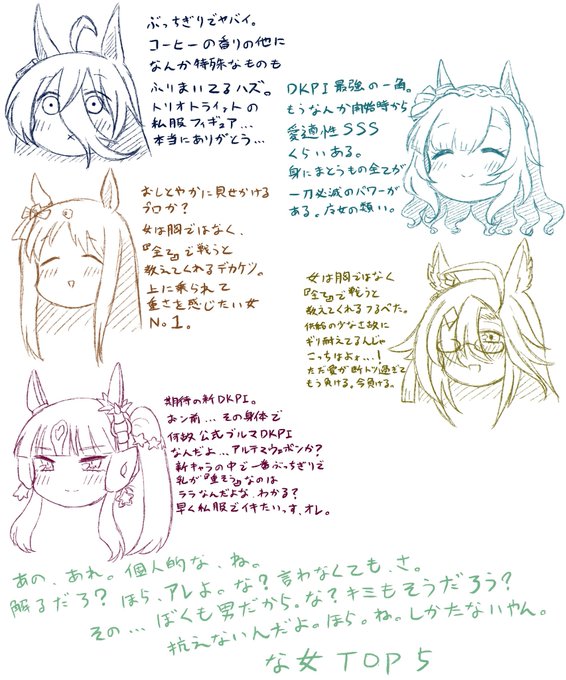 ぶっちぎりでヤバイ。
コーヒーの香りの他に
なんか特殊なものも
ふりまいてるハズ。
トリオトライットの
私服フィギュア…
本当にありがとう…
DKPI最強の一角。
もうなんか開始時から
愛適性SSS
くらいある。
身にまとうもの全てが
一刀必滅のパワーが
ある。魔女の類い。
おしとやかに見せかける
プロか?
女は胸ではなく、
『全て』で戦うと
教えてくれるデカケツ。
上に乗られて
重さを感じたい女
No.1。
女は胸ではなく
『全て』で戦うと
教えてくれるつるぺた。
供給の少なさ故に
ギリ耐えてるんじゃ
こっちはよォ…!
ただ愛が断トツ過ぎて
もう負ける。今負ける。
期待の新DKPI。
おン前…その身体で
何故公式ブルマDKPI
なんだよ…アルテマウェポンか?
新キャラの中で一番ぶっちぎりで
乳が『重そう』なのは
ララなんだよな、わかる?
早く私服でイキたいっす、オレ。
あの、あれ。個人的な、ね。
解るだろ? ほら、アレよ。な?言わなくても、さ。
その… ぼくも男だから。な?キミもそうだろう?
抗えないんだよ。ほら。ね。しかたないやん。
な女 TOP5